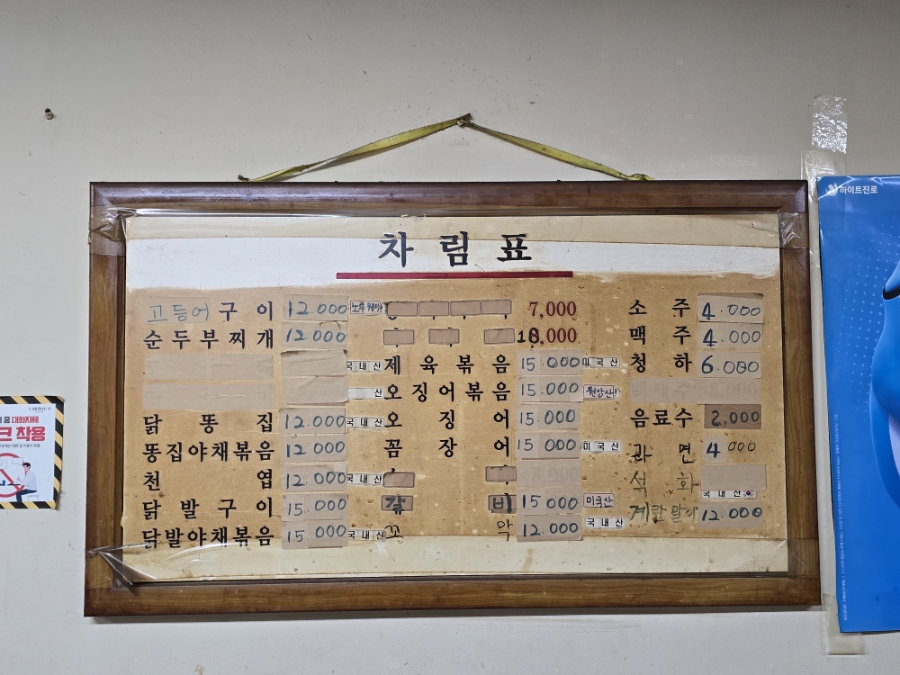 차림표
고등어구이 12.000 노르웨이
순두부찌개 12.000
국내산
산
닭똥집 12.000 국내산
똥집야채볶음 12.000
천엽 12.000 국내산
닭발구이 15.000
닭발야채볶음 15.000 국내산
7,000
제육볶음 15.000 미국산
오징어볶음 15.000 원양산
오징어 15.000
꼼장어 15.000 미국산
갈비 15.000 미국산
꼬막 12.000 국내산
소주 4.000
맥주 4.000
청하 6.000
음료수 2,000
라면 4.000
석화
국내산
계란말이 12.000
하이트진로
대화자제
크 착용